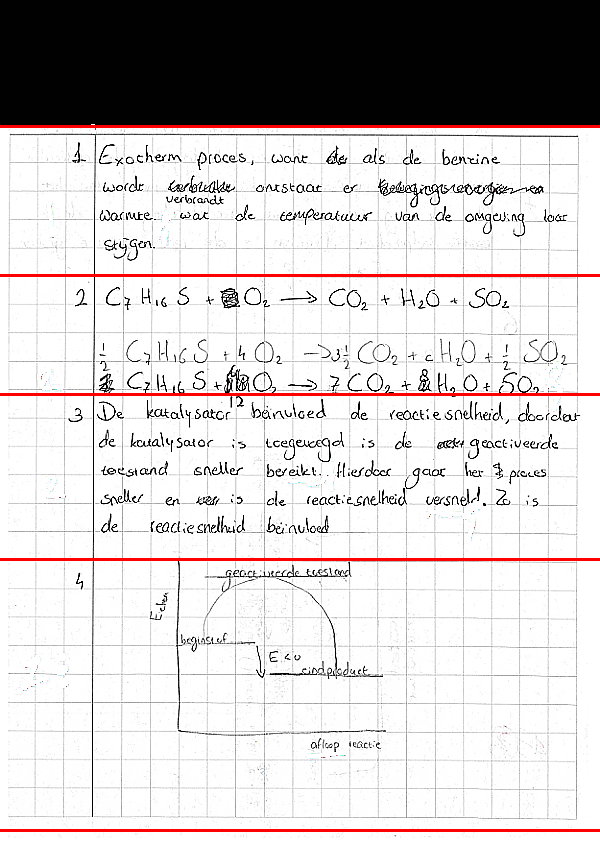 1 Exotherm proces, want als de benzine
wordt verbrandt ontstaat er
warmte. wat de temperatuur van de omgeving laat
stijgen.
2 C7 H16 S + O2 → CO2 + H2O + SO2
1/2 C7H16S + O2 → 3 1/2 CO2 + H2O + 1/2 SO2
C7H16S + O2 → 7 CO2 + H2O + SO2
12
3 De katalysator beinvloed de reactiesnelheid, doordat
de katalysator is toegevoegd is de geactiveerde
toestand sneller bereikt. Hierdoor gaat het proces
sneller en is de reactiesnelheid versneld. Zo is
de reactiesnelheid beinvloed
4
geactiveerde toestand
beginstof
E<0
eindproduct
afloop reactie